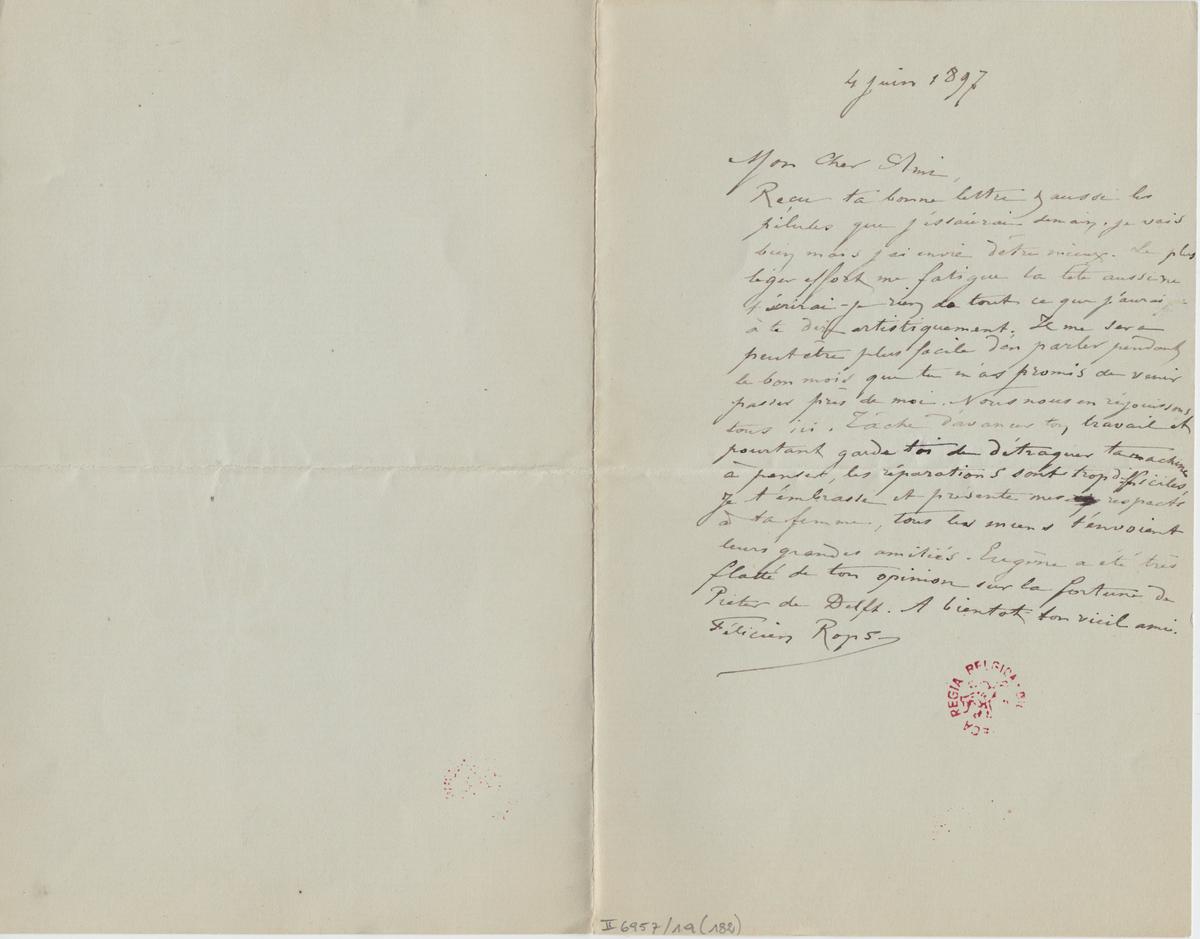 4 juin 1897
Mon Cher Ami,
Recu ta bonne lettre & aussi les
pilules que j'éssaierai demain. je vais
bien mais j'ai envie d'être mieux. Le plus
léger effort me fatigue la tête aussi ne
t'écrirai-je rien de tout ce que j'aurai
à te dire artistiquement. Il me sera
peutêtre plus facile d'en parler pendant
le bon mois que tu m'as promis de venir
passer près de moi. Nous nous en réjouissons
tous ici. Tâche d'avancer ton travail et
pourtant garde toi de détraquer ta machine
à penser, les réparations sont trop difficiles,
Je t'embrasse et présente mes respects
à ta femme, tous les miens t'envoient
leurs grandes amitiés. Eugène a été très
flatté de ton opinion sur la fortune de
Pieter de Delft. A bientot ton vieil ami.
Félicien Rops
REGIA BELGICA
II 6957/19 (182)